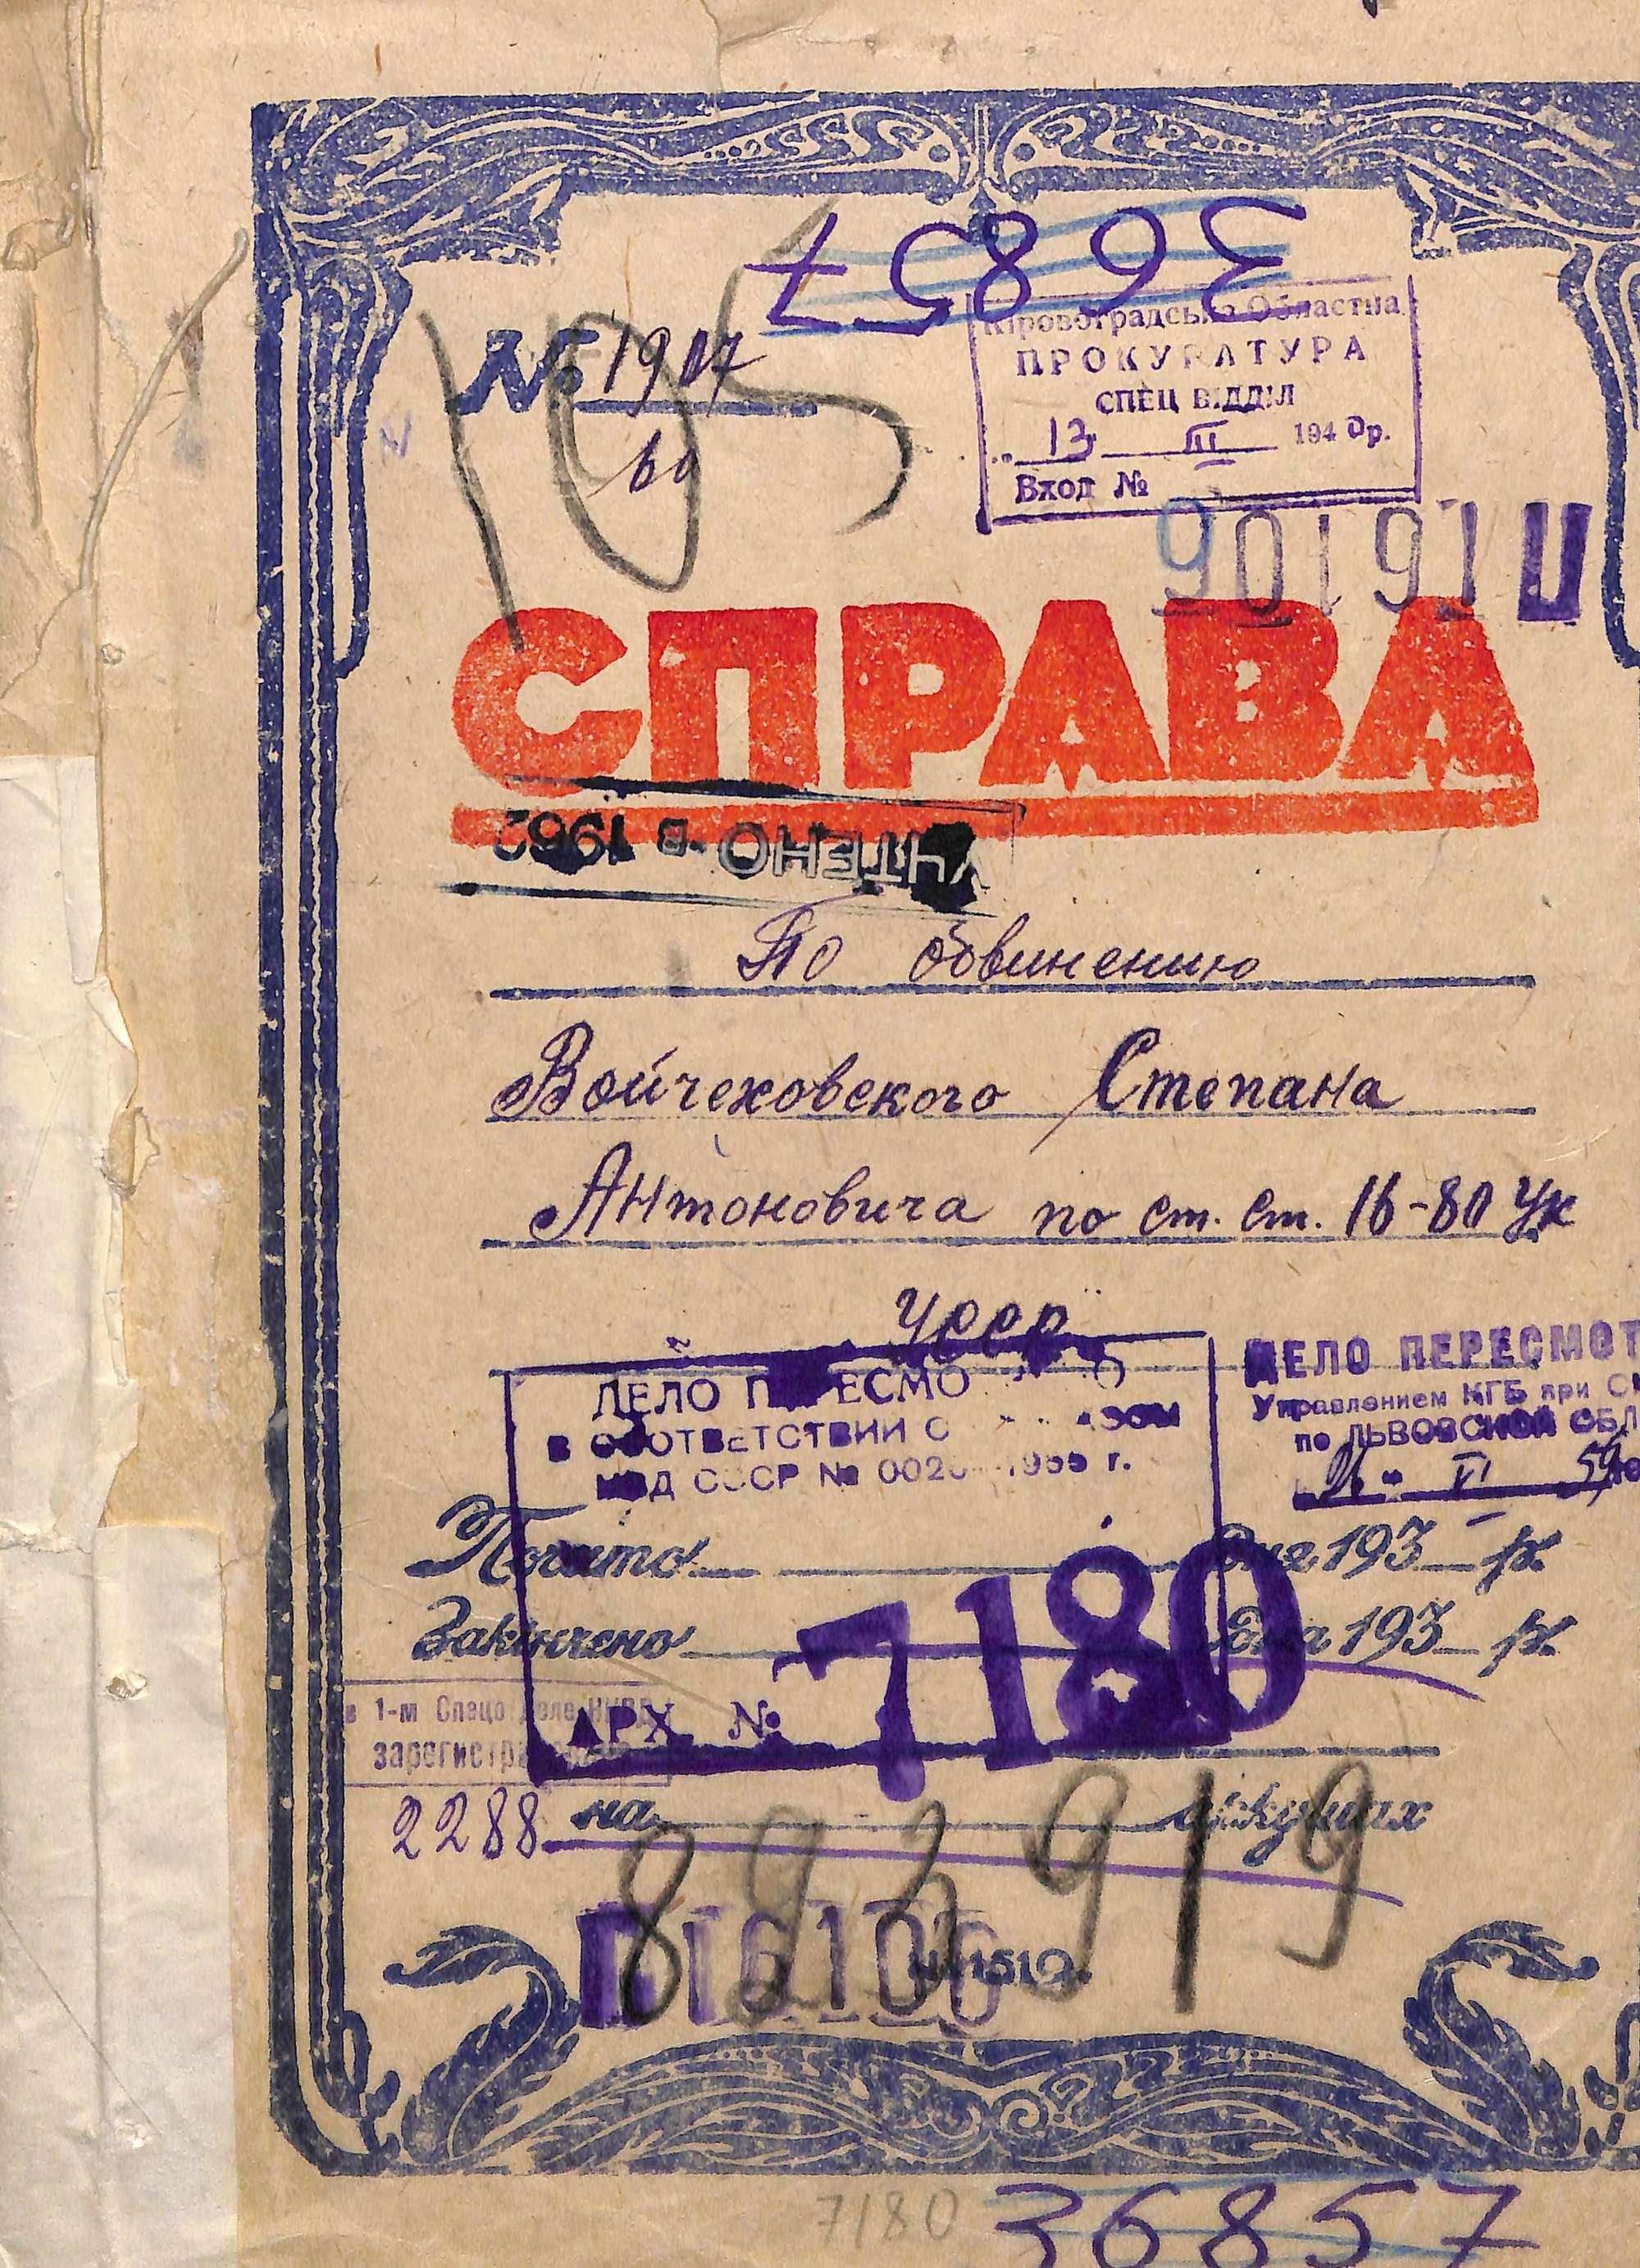 36857
№ 1907
60
105
Кіровоградська Областна
ПРОКУРАТУРА
СПЕЦ ВІДДІЛ
13 III 1940 р.
Вход №
90191 П
СПРАВА
УЧТЕНО В 1962
По обвинению
Войчеховского Степана
Антоновича по ст. ст. 16-80 УК
УССР
ДЕЛО ПЕРЕСМО
В СООТВЕТСТВИИ С
МВД СССР № 1955 г.
ДЕЛО ПЕРЕСМОТ
Управлением КГБ при С
по ЛЬВОВСКОЙ ОБЛ
VI 59
Почато дня 193 р.
Закінчено дня 193 р.
АРХ № 7180
в 1-м Спецотделе НКВД
зарегистр
2288
на аркушах
919
№ 1519.
7180
36857